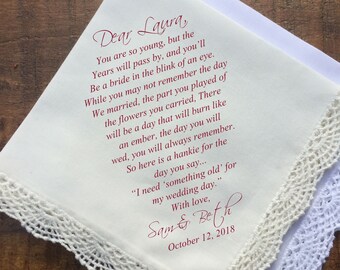 Dear Laura,
You are so young, but the
Years will pass by, and you'll
Be a bride in the blink of an eye.
While you may not remember the day
We married, the part you played of
the flowers you carried, There
will be a day that will burn like
an ember. the day you will
wed, you will always remember.
So here is a hankie for the
day you say...
"I need 'something old' for
my wedding day."
With love,
Sam & Beth
October 12, 2018